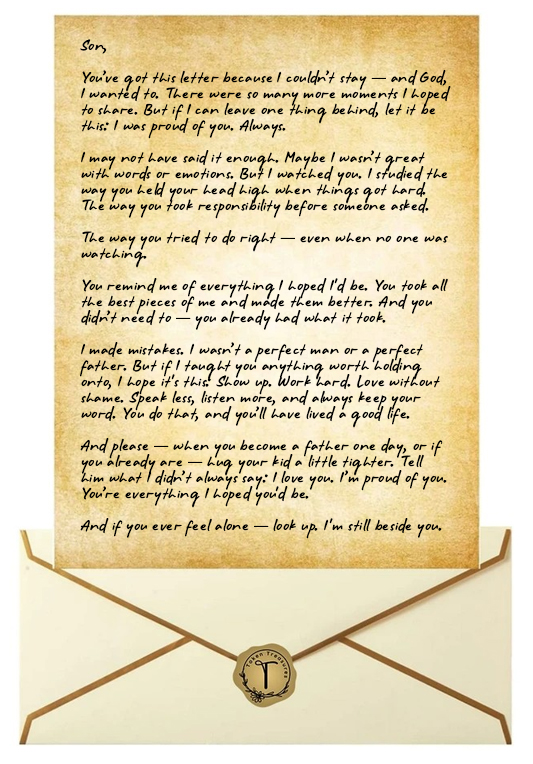 Son,
You've got this letter because I couldn't stay — and God,
I wanted to. There were so many more moments I hoped
to share. But if I can leave one thing behind, let it be
this: I was proud of you. Always.
I may not have said it enough. Maybe I wasn't great
with words or emotions. But I watched you. I studied the
way you held your head high when things got hard.
The way you took responsibility before someone asked.
The way you tried to do right — even when no one was
watching.
You remind me of everything I hoped I'd be. You took all
the best pieces of me and made them better. And you
didn't need to — you already had what it took.
I made mistakes. I wasn't a perfect man or a perfect
father. But if I taught you anything worth holding
onto, I hope it's this: Show up. Work hard. Love without
shame. Speak less, listen more, and always keep your
word. You do that, and you'll have lived a good life.
And please — when you become a father one day, or if
you already are — hug your kid a little tighter. Tell
him what I didn't always say: I love you. I'm proud of you.
You're everything I hoped you'd be.
And if you ever feel alone — look up. I'm still beside you.
Token Treasures
T